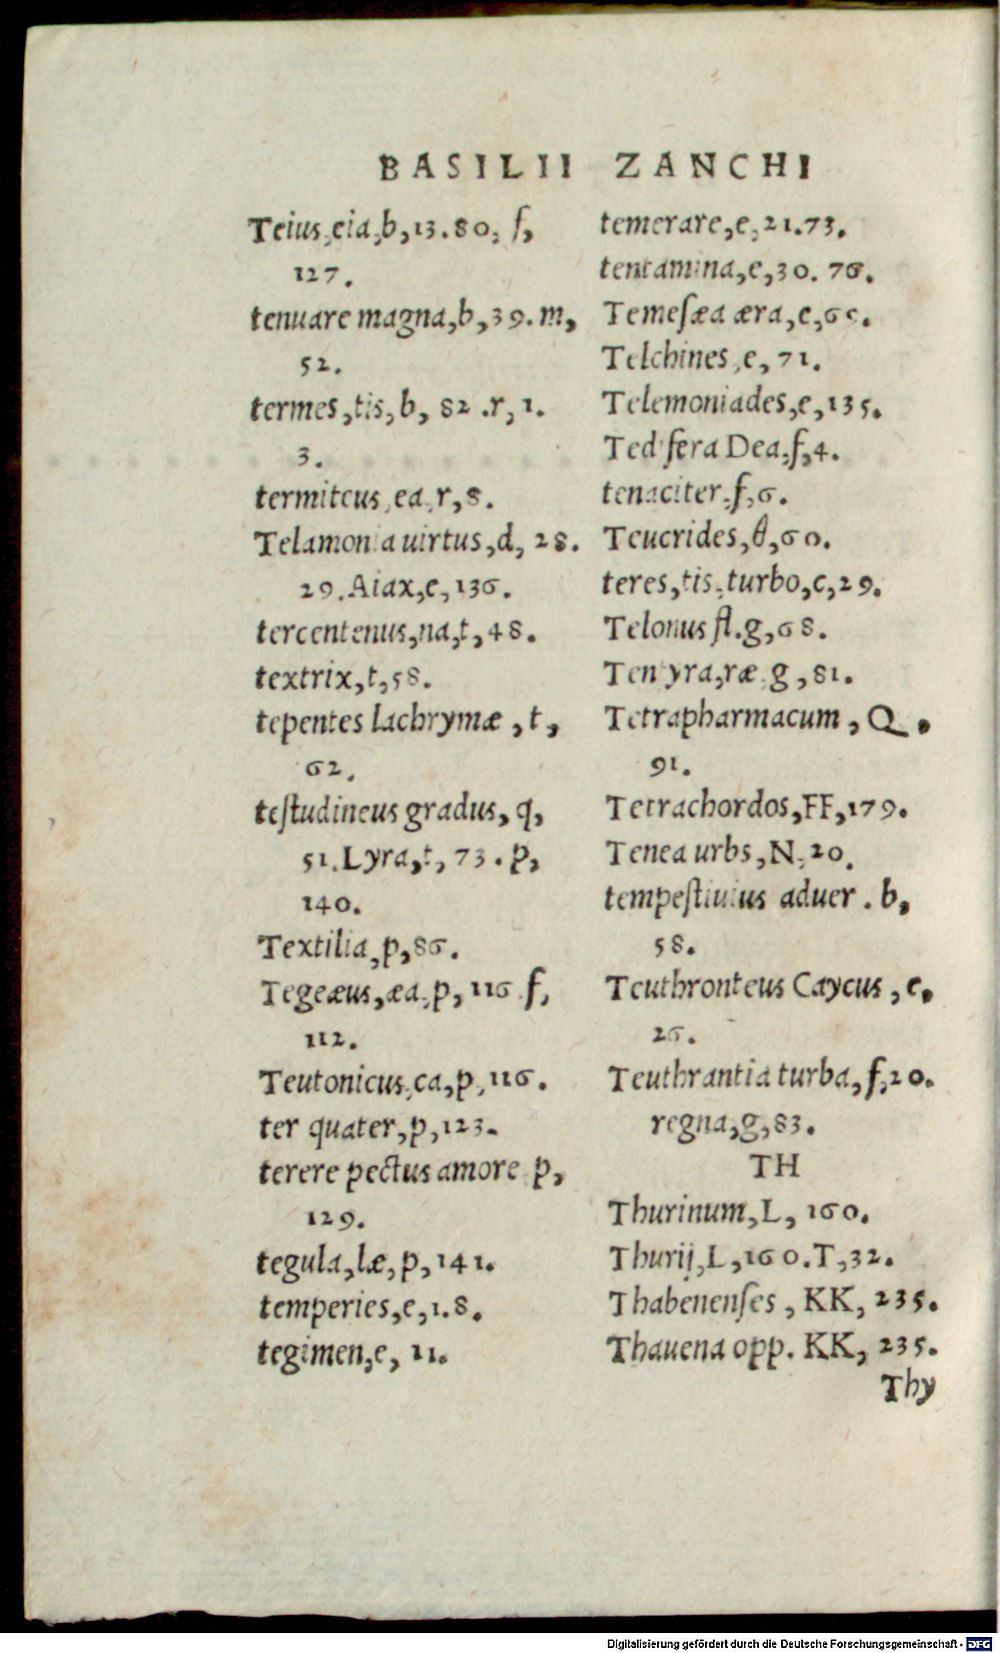 BASILII ZANCHI
Teius, eia, b, 13. 80, ſ,
127.
tenuare magna, b, 39. m,
52.
termes, tis, b, 82. r, 1.
3.
termiteus, ea, r, 8.
Telamonia uirtus, d, 28.
29. Aiax, e, 136.
tercentenus, na, t, 48.
textrix, t, 58.
tepentes lachrymæ, t,
62.
teſtudineus gradus, q,
51. Lyra, t, 73. p,
140.
Textilia, p, 86.
Tegeæus, æa, p, 116 ſ,
112.
Teutonicus, ca, p, 116.
ter quater, p, 123.
terere pectus amore p,
129.
tegula, læ, p, 141.
temperies, e, 1. 8.
tegimen, e, 11.
temerare, e, 21. 73.
tentamina, e, 30. 76.
Temeſæa æra, e,
Telchines, e, 71.
Telemoniades, e, 135.
Ted fera Dea, ſ, 4.
tenaciter, ſ, 6.
Teucrides, θ, 60.
teres, tis, turbo, c, 29.
Telonus fl. g, 68.
Tentyra, ræ g, 81.
Tetrapharmacum, Q,
91.
Tetrachordos, FF, 179.
Tenea urbs, N, 20.
tempeſtiuius aduer. b,
58.
Teuthronteus Caycus, e,
26.
Teuthrantia turba, ſ, 20.
regna, g, 83.
TH
Thurinum, L, 160.
Thurij, L, 160. T, 32.
Thabenenſes, KK, 235.
Thauena opp. KK, 235.
Thy
Digitalisierung gefördert durch die Deutsche Forschungsgemeinschaft - DFG